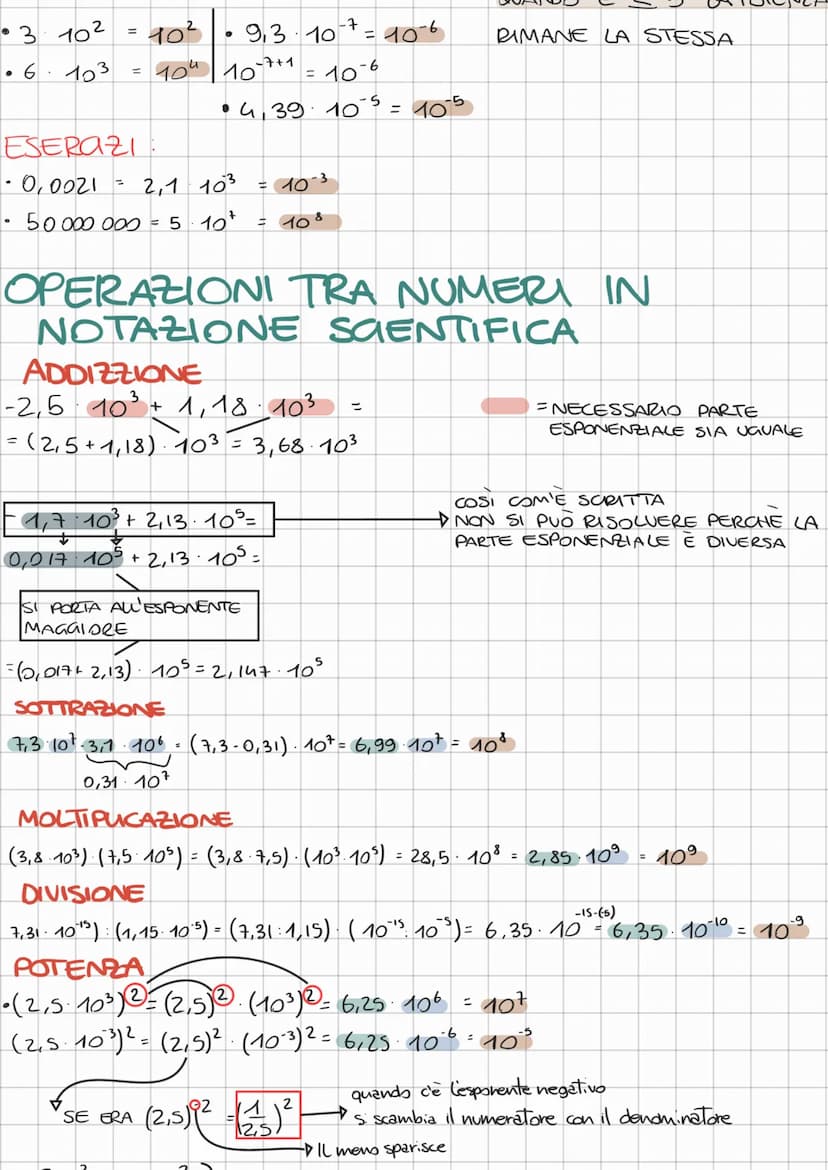 • 3 · 10² = 10²
• 6 · 10³ = 10⁴
• 9,3 · 10⁻⁷ = 10⁻⁶
10⁻⁷⁺¹ = 10⁻⁶
• 4,39 · 10⁻⁵ = 10⁻⁵
RIMANE LA STESSA
ESERCIZI :
· 0,0021 = 2,1 · 10⁻³ = 10⁻³
· 50 000 000 = 5 · 10⁷ = 10⁸
OPERAZIONI TRA NUMERI IN
NOTAZIONE SCIENTIFICA
ADDIZZIONE
-2,5 · 10³ + 1,18 · 10³ =
= (2,5 + 1,18) · 10³ = 3,68 · 10³
= NECESSARIO PARTE
ESPONENZIALE SIA UGUALE
- 1,7 · 10³ + 2,13 · 10⁵ =
0,017 · 10⁵ + 2,13 · 10⁵ =
COSÌ COM'È SCRITTA
NON SI PUÒ RISOLVERE PERCHÈ LA
PARTE ESPONENZIALE È DIVERSA
SI PORTA ALL'ESPONENTE
MAGGIORE
= (0,017 + 2,13) · 10⁵ = 2,147 · 10⁵
SOTTRAZIONE
7,3 · 10⁷ - 3,1 · 10⁶ = (7,3 - 0,31) · 10⁷ = 6,99 · 10⁷ = 10⁸
0,31 · 10⁷
MOLTIPLICAZIONE
(3,8 · 10³) · (7,5 · 10⁵) = (3,8 · 7,5) · (10³ · 10⁵) = 28,5 · 10⁸ = 2,85 · 10⁹ = 10⁹
DIVISIONE
7,31 · 10⁻¹⁵) : (1,15 · 10⁻⁵) = (7,31 : 1,15) · (10⁻¹⁵ : 10⁻⁵) = 6,35 · 10⁻¹⁵⁻⁽⁵⁾ = 6,35 · 10⁻¹⁰ = 10⁻⁹
POTENZA
• (2,5 · 10³)² = (2,5)² · (10³)² = 6,25 · 10⁶ = 10⁷
(2,5 · 10⁻³)² = (2,5)² · (10⁻³)² = 6,25 · 10⁻⁶ = 10⁻⁵
SE ERA (2,5)⁻² = (1/2,5)²
quando c'è l'esponente negativo
si scambia il numeratore con il denominatore
IL meno sparisce